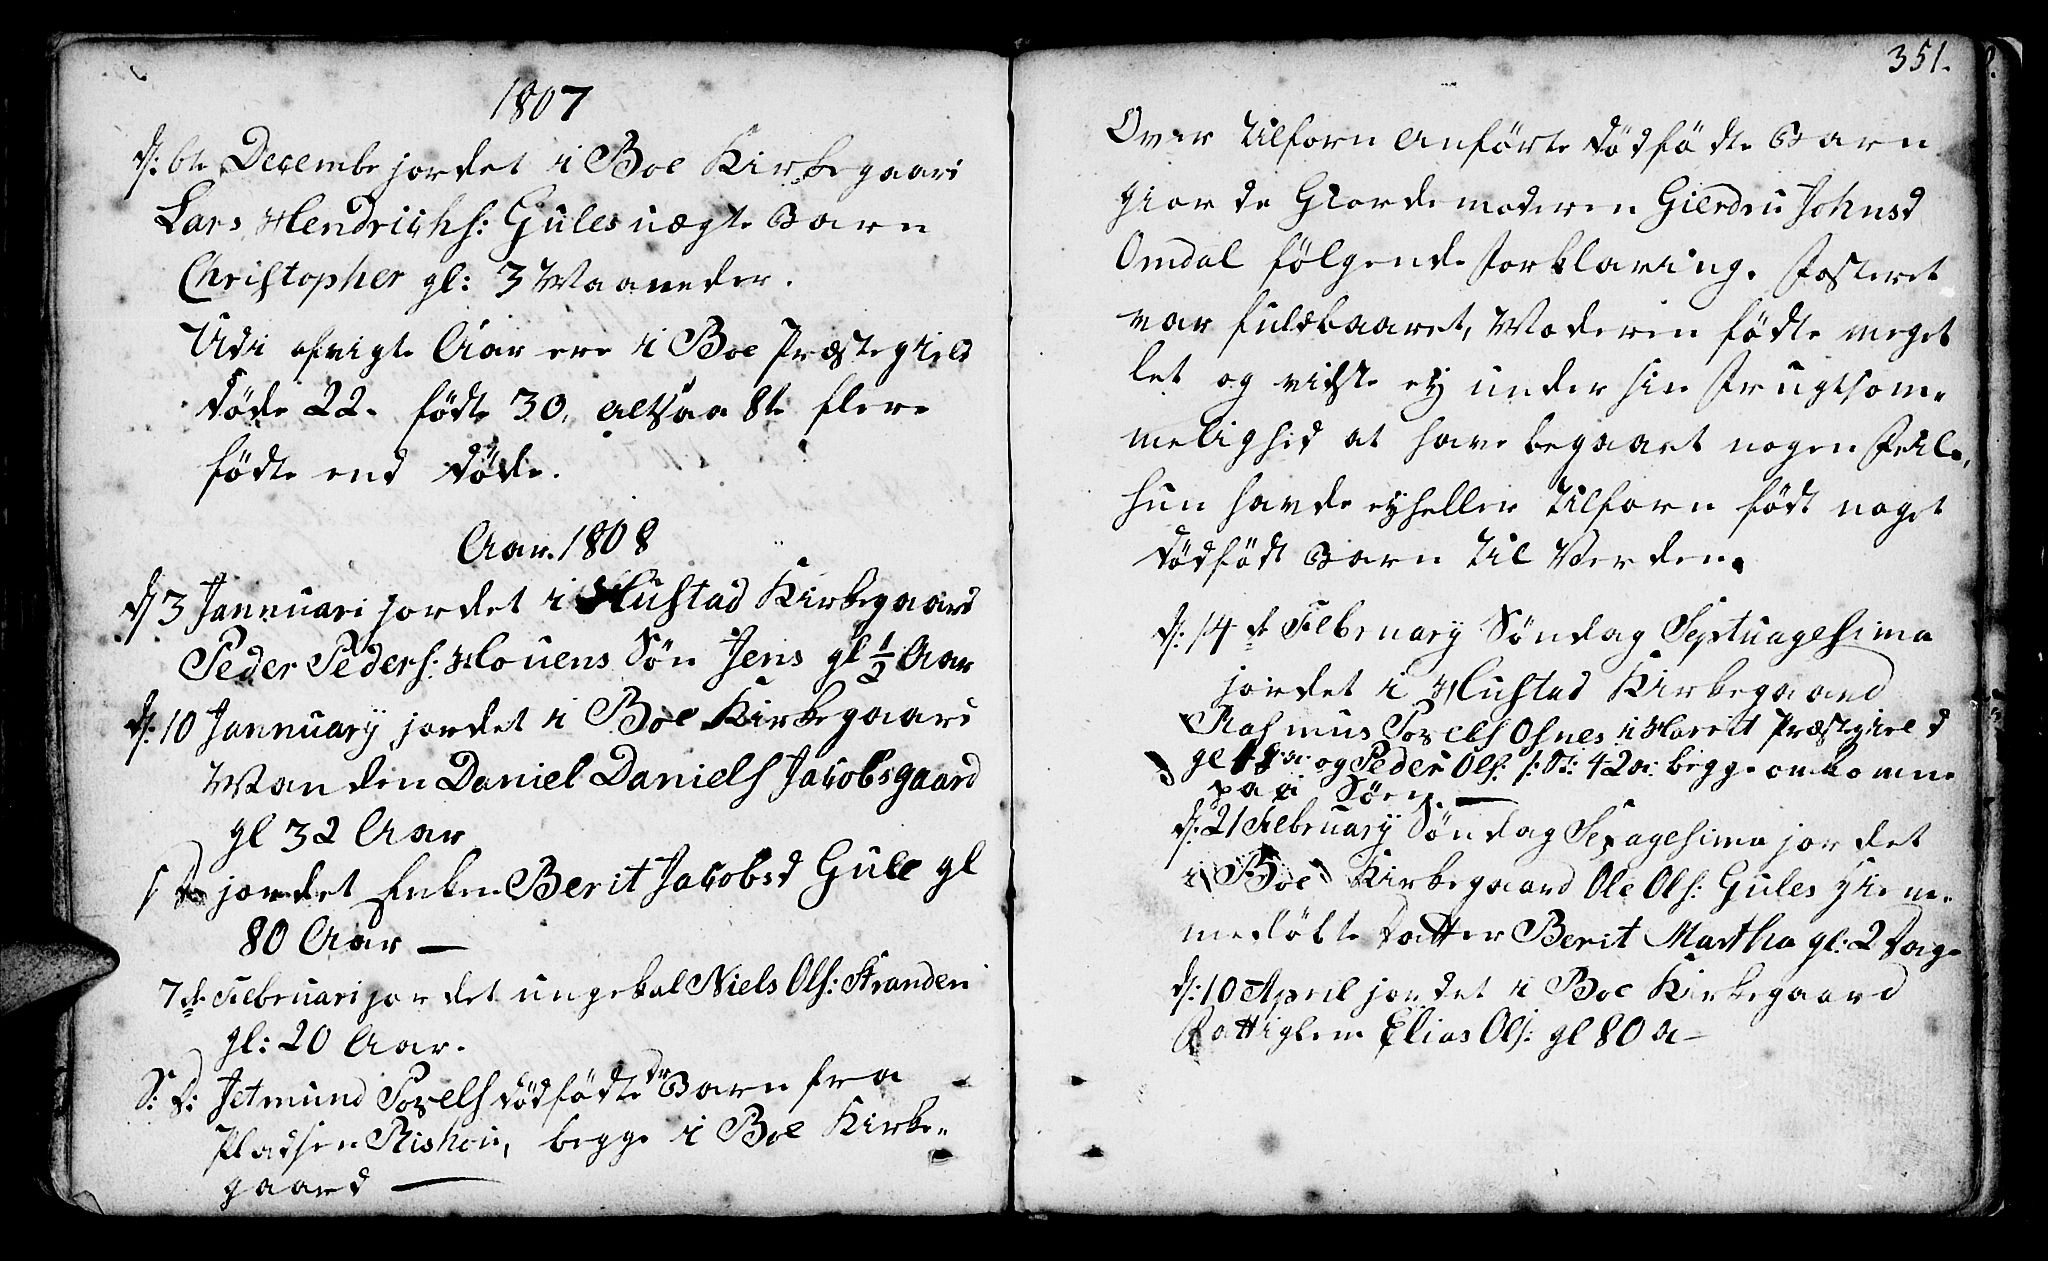 1807
d: 6te Decembr jordet i Boe Kirkegaard
Lars Hendrichs: Gules uægte Barn
Christopher gl: 3 Maaneder.
Udi afvigte Aar ere i Boe Præstegield
døde 22. fødte 30, altsaa 8te flere
fødte end døde.
Aar. 1808
d: 3 Jannuari jordet i Hustad Kirkegaard
Peder Peders: Houens Søn Jens gl ½ Aar
d: 10 Jannuary jordet i Boe Kirkegaard
Manden Daniel Daniels Jacobsgaard
gl 32 Aar
jordet Enken Berit Jacobsd Gule gl
80 Aar —
7de Februari jordet ungekal Niels Ols: Stranden
gl: 20 Aar.
S: D: Jetmund Povels dødfødte Barn fra
Pladsen Rishou, begge i Boe Kirke-
gaard —
351.
Over tilforn anførte dødfødte Barn
giorde Giordemoderen Gierdru Johnsd
Omdal følgende forklaring. Fosteret
var fuldbaaret, Moderen fødte meget
let og vidste ey under sin Frugtsom-
melighed at have begaaet nogen Feil,
hun havde ey heller tilforn født noget
dødfødt Barn til Verden.
d: 14de February Søndag Septuagesima
jordet i Hustad Kirkegaard
Rasmus Povels Osnes i Hareit Præstegield
gl 18 a: og Peder Ols: 42 a: begge omkomne
paa Søen. —
d: 21 February Søndag Sexagesima jordet
i Boe Kirkegaard Ole Ols: Gules hiem-
medøbte datter Berit Martha gl: 2 dage
d: 10 April jordet i Boe Kirkegaard
Fattiglem Elias Ols: gl 80 a —